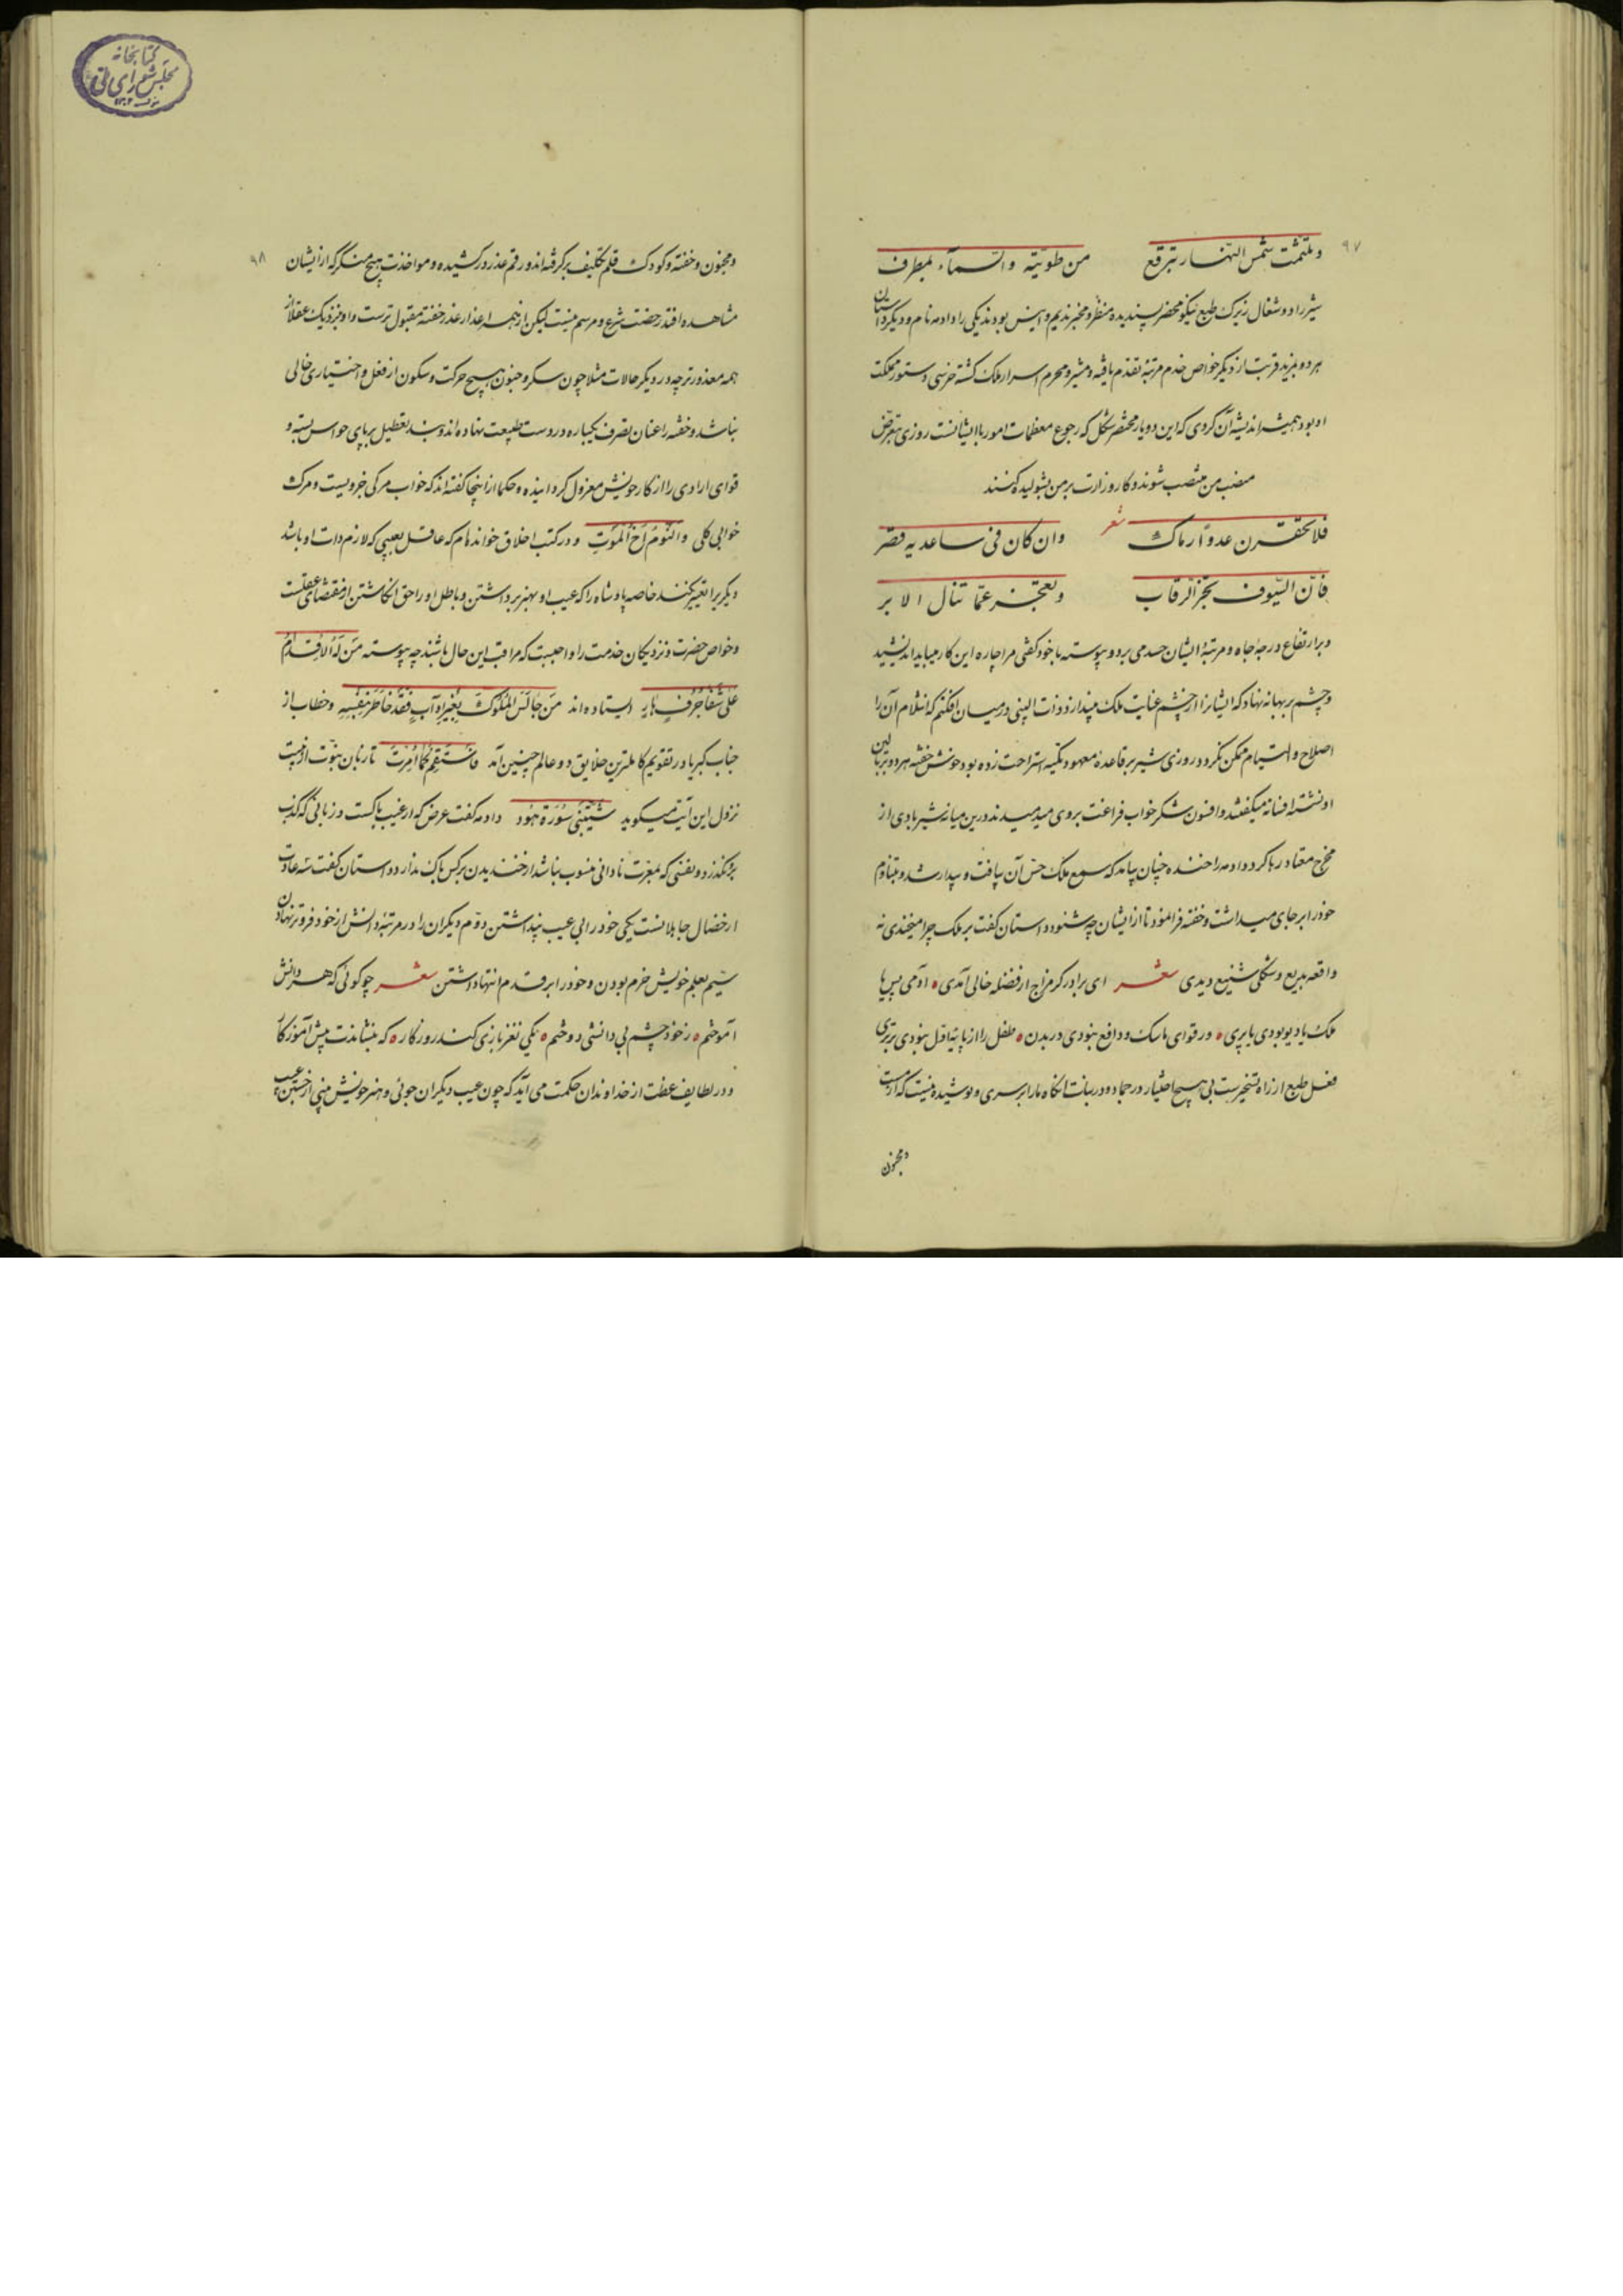 ۹۷
و تلثمت شمس النهار ببرقع من طوتیه والسمآء بمطرف
شیر را دو شغال زیرک طبع نیکو محضر پسندیده منظر و مخبر ندیم و انیس بودند یکی را دادمه نام و دیگر داستان
هر دو بمزید قربت از دیگر خواص خدم مرتبه تقدم یافته و مشیر و محرم اسرار ملک گشته خرسی دستور مملکت
او بود همیشه اندیشه آن کردی که این دو یار مختصر شکل که رجوع معظمات امور با ایشانست روزی بتعرض
منصب من منتصب شوند و کار وزارت بر من بشولیده کنند
شعر
فلا تحقرن عدوا رماک وان کان فی ساعدیه قصر
فان السیوف تحز الرقاب و تعجز عما تنال الابر
و بر ارتفاع درجهٔ جاه و مرتبهٔ ایشان حسد می برد و پیوسته با خود گفتی مرا چاره این کار میباید اندیشید
و چشم بر بهانه نهاد که ایشانرا از چشم عنایت ملک بیندازد و ذات البینی در میان افکنم که انثلام آن را
اصلاح و التیام ممکن نگردد روزی شیر بر قاعدهٔ معهود تکیه استراحت زده بود خوش خفته هر دو بر بالین
او نشسته افسانه میگفتند و افسون شکر خواب فراغت بر وی میدمیدند درین میانه شیر بادی از
مخرج معتاد رها کرد دادمه را خنده چنان بیامد که سمع ملک حس آن یافت و بیدار شد و متناوم
خود را بر جای میداشت و خفته فرا نمود تا از ایشان چه شنود داستان گفت بر ملک چرا میخندی نه
واقعه بدیع و شکلی شنیع دیدی شعر ای برادر گر مزاج از فضله خالی آمدی آدمی پس یا
ملک یا دیو بودی یا پری ور قوای ماسک و دافع نبودی در بدن طفل را از پایه اول نبودی برتری
فعل طبع از راه تسخیرست بی هیچ اختیار در جماد و در نبات آنگاه ما را بر سری و پوشیده نیست که از مست
و مجنون
۹۸
و مجنون و خفته و کودک قلم تکلیف برگرفته اند و رقم عذر درکشیده و مواخذت بهیچ منکر که از ایشان
مشاهده افتد رخصت شرع و مرسم نیست لیکن از همه اعذار عذر خفته مقبول ترست و او بنزدیک عقلا از
همه معذورتر چه در دیگر حالات مثلا چون سکر و جنون هیچ حرکت و سکون از فعل و اختیاری خالی
نباشد و خفته را عنان تصرف بیکباره در دست طبیعت نهاده اند و بند تعطیل بر پای حواس بسته و
قوای ارادی را از کار خویش معزول گردانیده و حکما از اینجا گفته اند که خواب مرگی جزویست و مرگ
خوابی کلی والنوم اخ الموت و در کتب اخلاق خوانده ام که عاقل بعیبی که لازم ذات او باشد
دیگر را تعییر نکند خاصه پادشاه را که عیب او بهنر برداشتن و باطل او را حق انگاشتن از مقتضای عقلست
و خواص حضرت و نزدیکان خدمت را واجبست که مراقب این حال باشند چه پیوسته من لة الاقدام
علی شفا جرف هار ایستاده اند من جالس الملوک بغیر ادآب فقد خاطر بنفسه و خطاب از
جناب کبریا در تقویم کاملترین خلایق دو عالم چنین آمد فاستقم کما امرت تا زبان نبوت از هیبت
نزول این آیت میگوید شیبتنی سورة هود دادمه گفت عرض که از عیب پاکست و زبانی که کذب
برو نگذرد و نفسی که بمعرت نادانی منسوب نباشد از خندیدن بر کس باک ندارد داستان گفت سه عادت
از خصال جاهلانست یکی خود را بی عیب پنداشتن دوم دیگران را در مرتبه دانش از خود فروتر نهادن
سیم بعلم خویش خرم بودن و خود را بر قدم انتها داشتن شعر چو گوئی که هر دانش
آموختم ز خود چشم بی دانشی دوختم یکی نغز بازی کند روزگار که بنشاندت پیش آموزگار
و در لطایف عظت از خداوندان حکمت می آید که چون عیب دیگران جوئی و هنر خویش بینی از جستن عیب
کتابخانه
مجلس شورای ملی